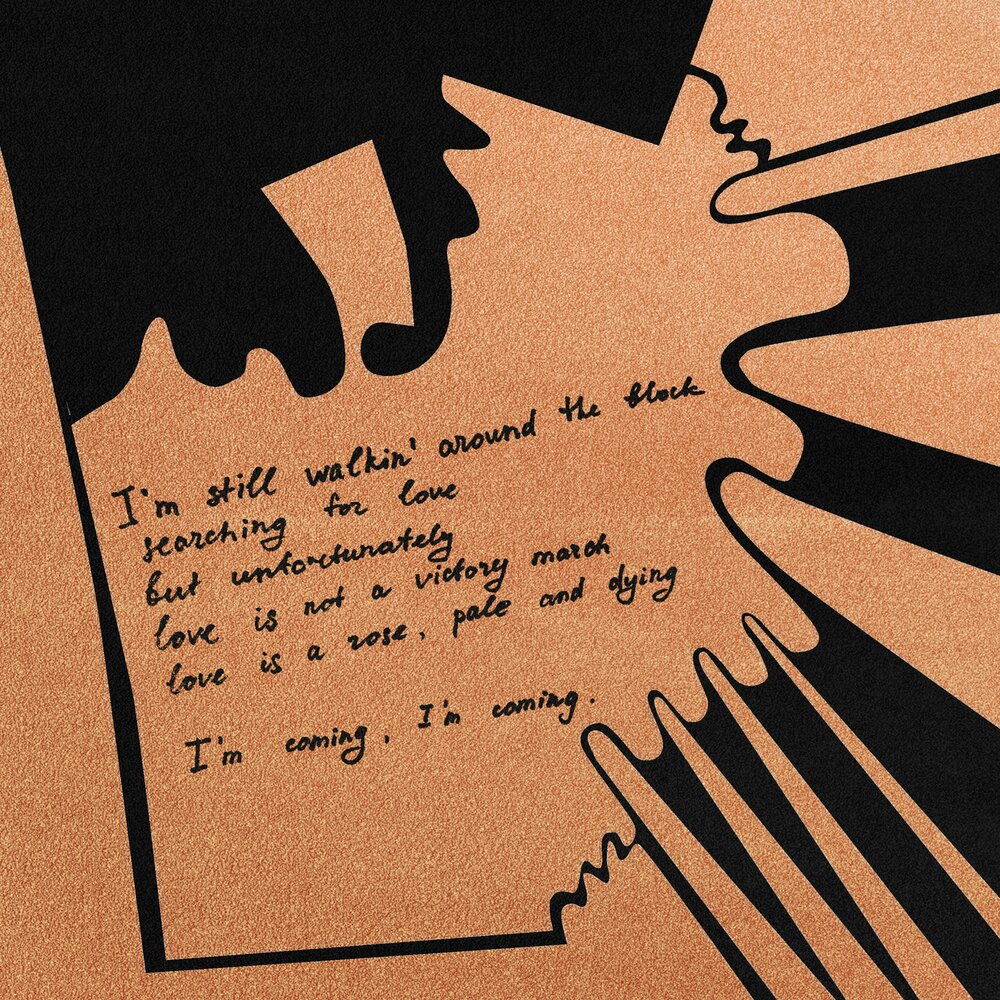 I'm still walkin' around the block
searching for love
but unfortunately
love is not a victory march
love is a rose, pale and dying
I'm coming, I'm coming.